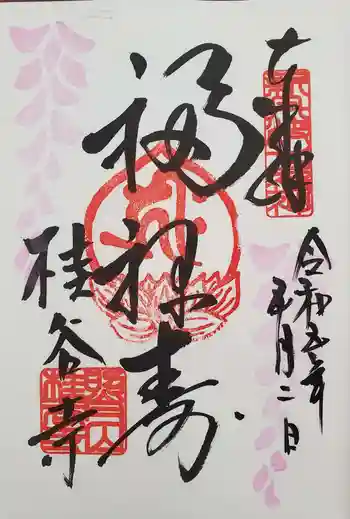 奉拝
令和五年
五月二日
福禄寿
桂谷寺